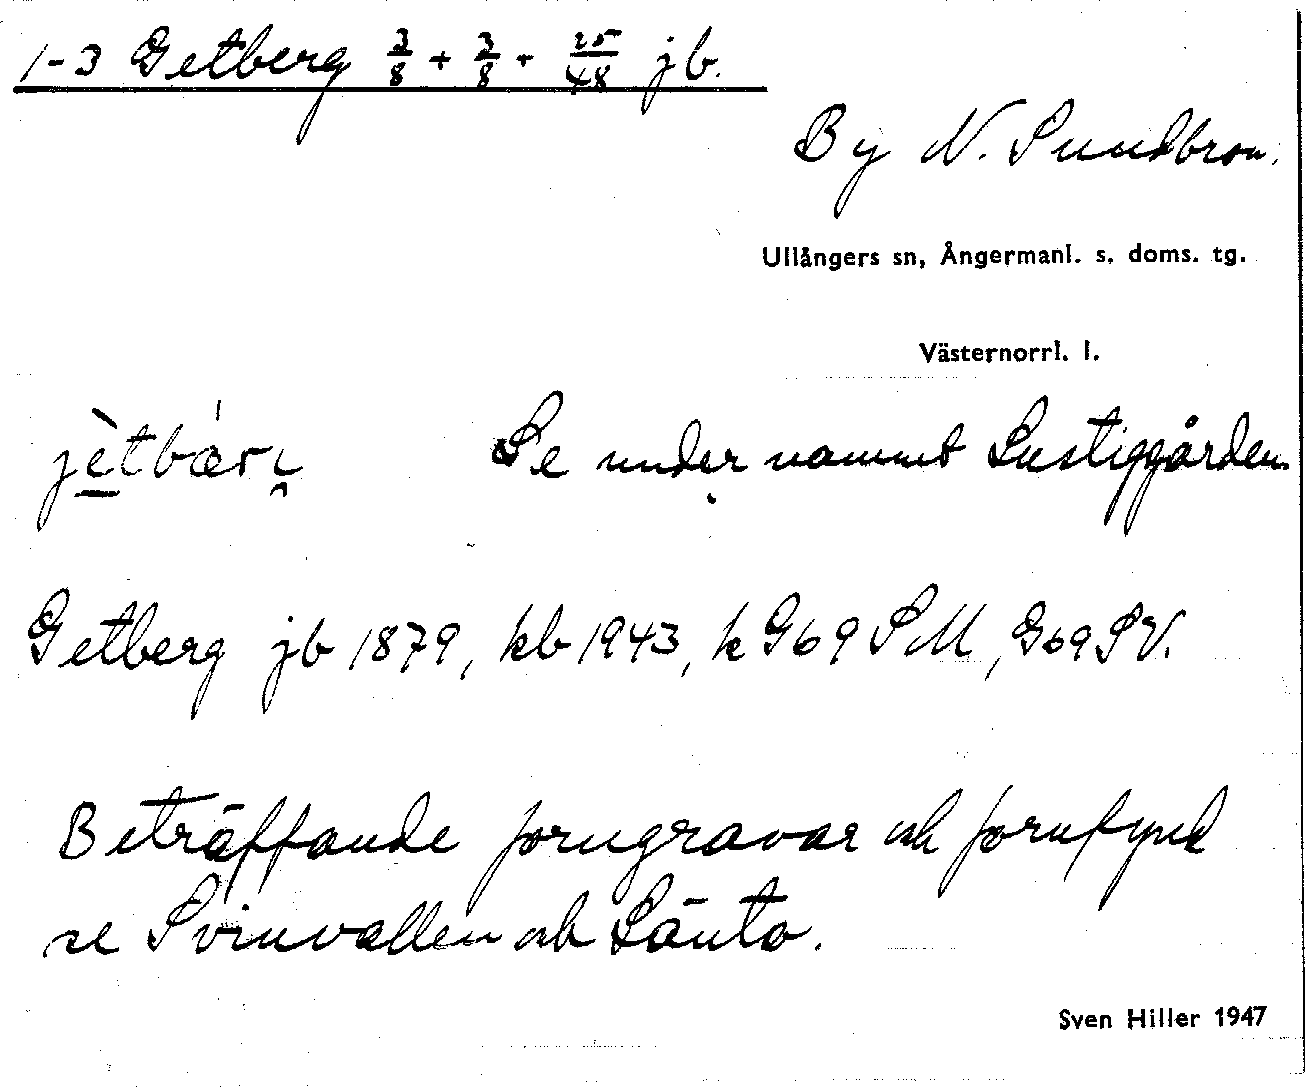 1-3 Getberg 3/8 + 3/8 + 25/48 jb.
By N. Sundbron.
Ullångers sn, Ångermanl. s. doms. tg.
Västernorrl. l.
jètbær Se under namnet Lustiggården.
Getberg jb 1879, kb 1943, k G69 SM, G69 SV.
Beträffande forngravar och fornfynd
se Svinvallen och Länta.
Sven Hiller 1947